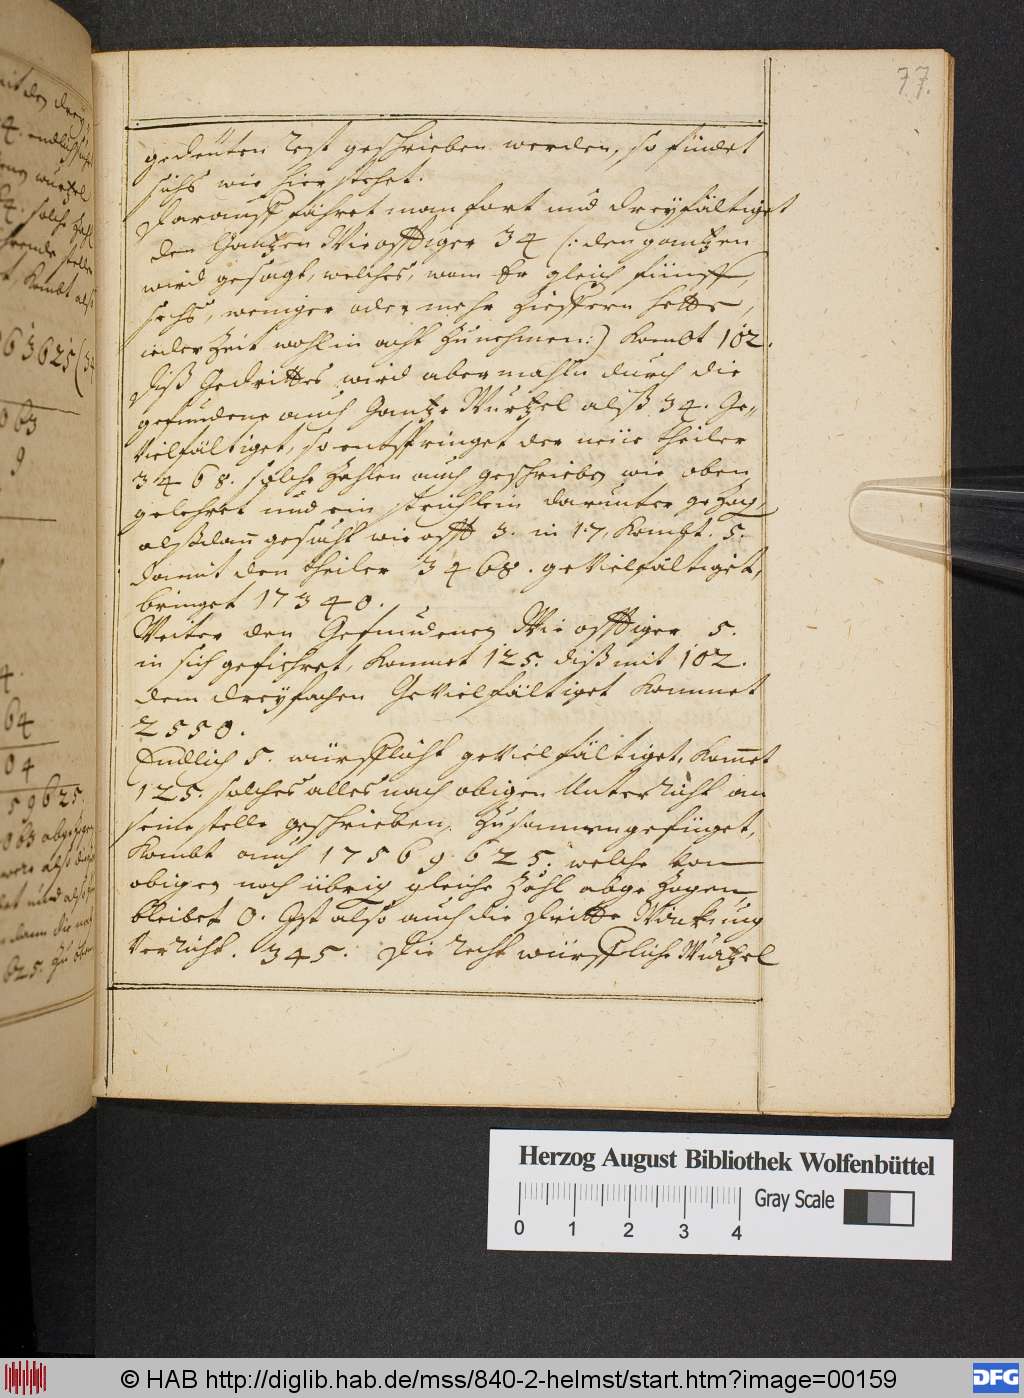 77.
gedeuten Rest geschrieben werden, so findet
sichs wie hier stehet.
Darauff fähret man fort und dreyfältiget
den Gantzen Wieofftiger 34 (: den gantzen
wird gesagt, welches, wann Er gleich fünff,
sechs, weniger oder mehr Zieffern hette,
ieder Zeit wohl in acht Zu nehmen:) kombt 102.
Diß Gedrittes wird abermahln durch die
gefundene auch Gantze Wurtzel alß 34. Ge-
Vielfältiget, so entspringet der neüe theiler
3468. solche Zahlen auch geschrieben wie oben
gelehret und ein strichlein darunter gezog,
alßdan gesucht wie offt 3. in 17, kombt. 5.
damit den theiler 3468. geVielfältiget,
bringet 17340.
Weiter den Gefundenen Wieofftiger 5.
in sich geführet, kommet 125. diß mit 102.
dem dreyfachen GeVielfältiget kommet
2550.
Endlich 5. würfflicht geVielfältiget, kommet
125. solches alles nach obigen Unterricht an
seine stelle geschrieben, Zusammengefüget,
kombt auch 17569625. welche von
obigen noch übrig gleiche Zahl abgezogen
bleibet 0. Ist also auch die dritte Wirkung
Verricht. 345. Die recht würffliche Wurtzel
63625(34
063
9
4.
64
04
59625.
063 abgezogen
625. Zu
Herzog August Bibliothek Wolfenbüttel
0 1 2 3 4
Gray Scale
© HAB http://diglib.hab.de/mss/840-2-helmst/start.htm?image=00159
DFG